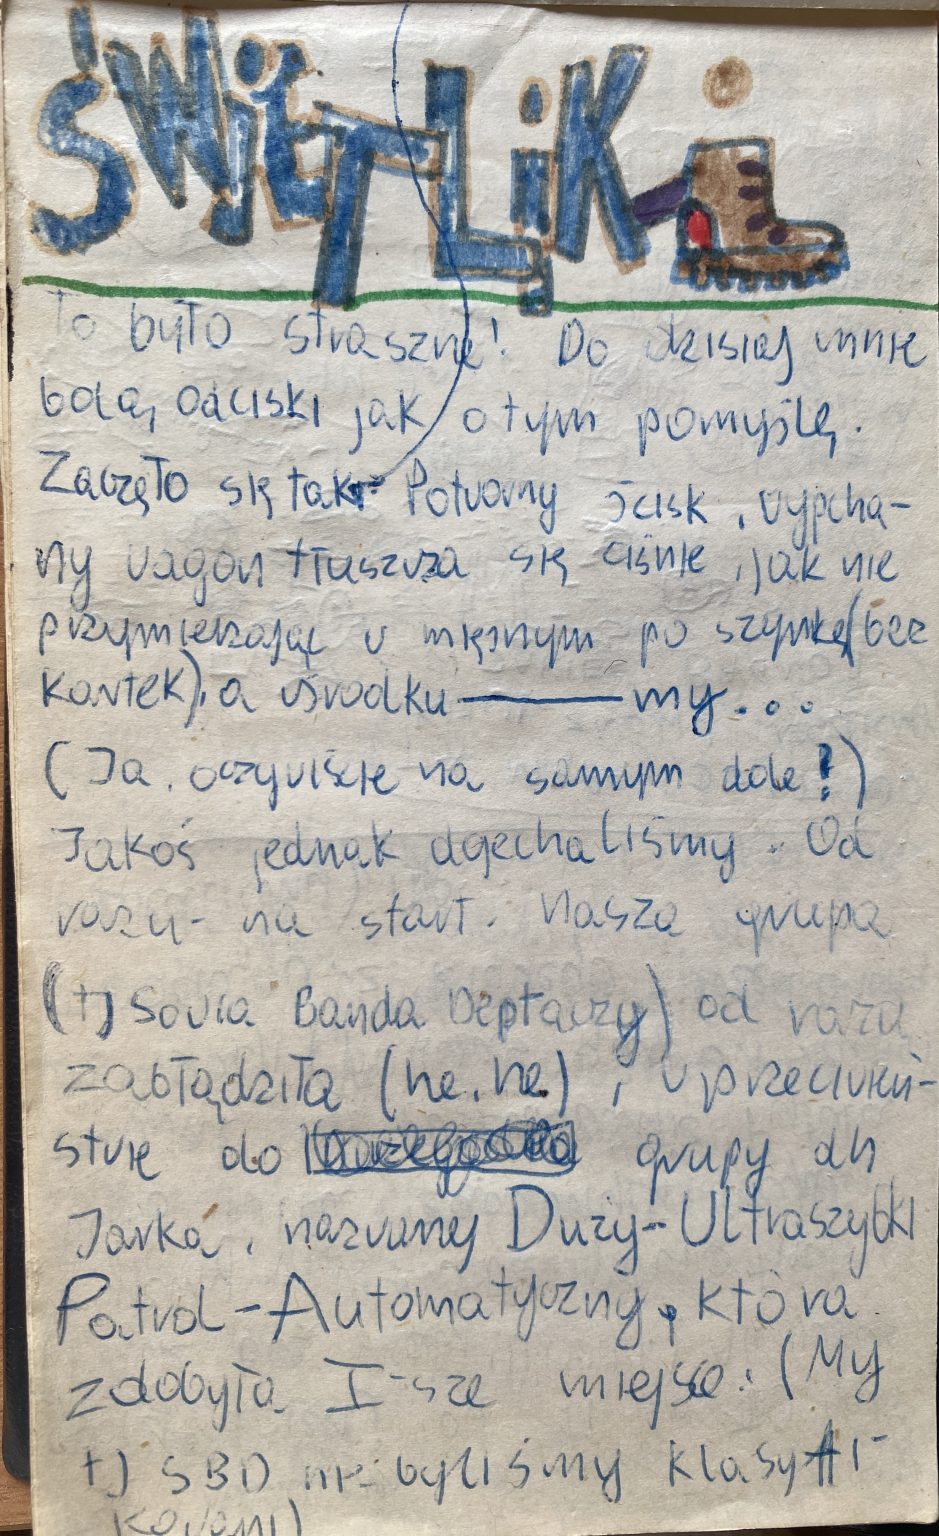 ŚWIETLIKi
To było straszne! Do dzisiaj mnie
bolą odciski jak o tym pomyślę.
Zaczęło się tak: Potworny ścisk, wypcha-
ny wagon tłuszcza się ciśnie, jak nie
przymierzając w mięsnym po szynkę (bez
kartek), a wśrodku — my...
(Ja, oczywiście na samym dole!)
Jakoś jednak dojechaliśmy. Od
razu - na start. Nasza grupa
(tj Sowia Banda Deptaczy) od razu
zabłądziła (he, he), w przeciwień-
stwie do grupy dh
Jarka, nazwanej Duży-Ultraszybki
Patrol-Automatyczny, która
zdobyła I-sze miejsce. (My
tj SBD nie byliśmy klasyfi-
kowani)